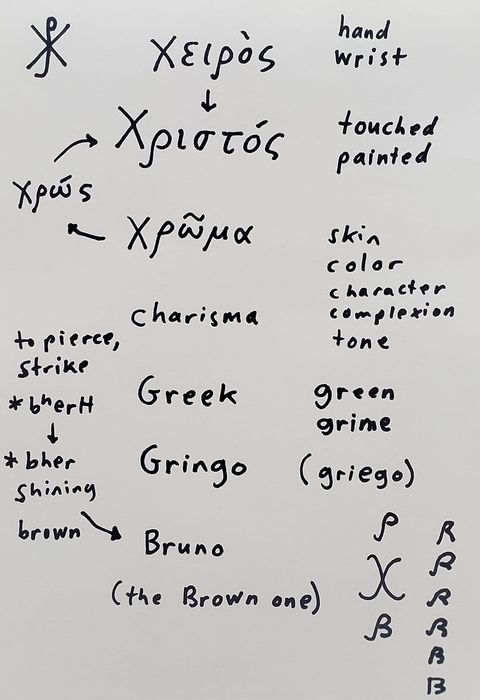 ☧
χειρὸς
hand
wrist
Χριστός
touched
painted
χρώς
χρῶμα
skin
color
character
complexion
tone
charisma
to pierce,
strike
*bʰerH
*bher
shining
brown
Greek
green
grime
Gringo
(griego)
Bruno
(the Brown one)
ρ
χ
β
R
R
R
R
B
B